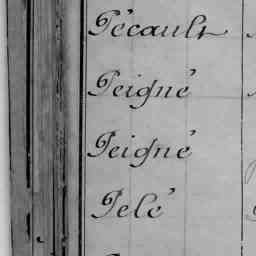 Pécault
Peigné
Peigné
Pelé